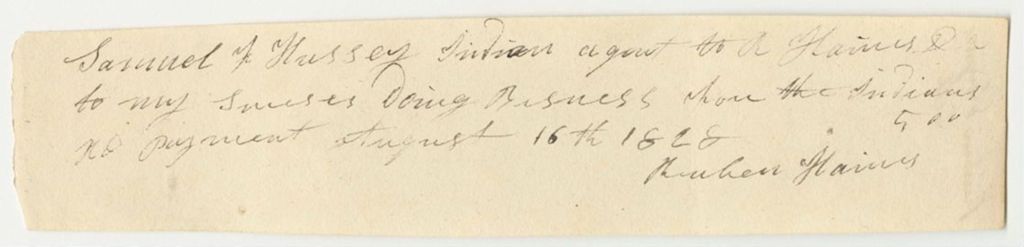 Samuel F Hussey Indian agent to R Haines Dr
to my Sarveses Doing Bisness when the Indians
Rd payment August 16th 1828 5.00
Reuben Haines